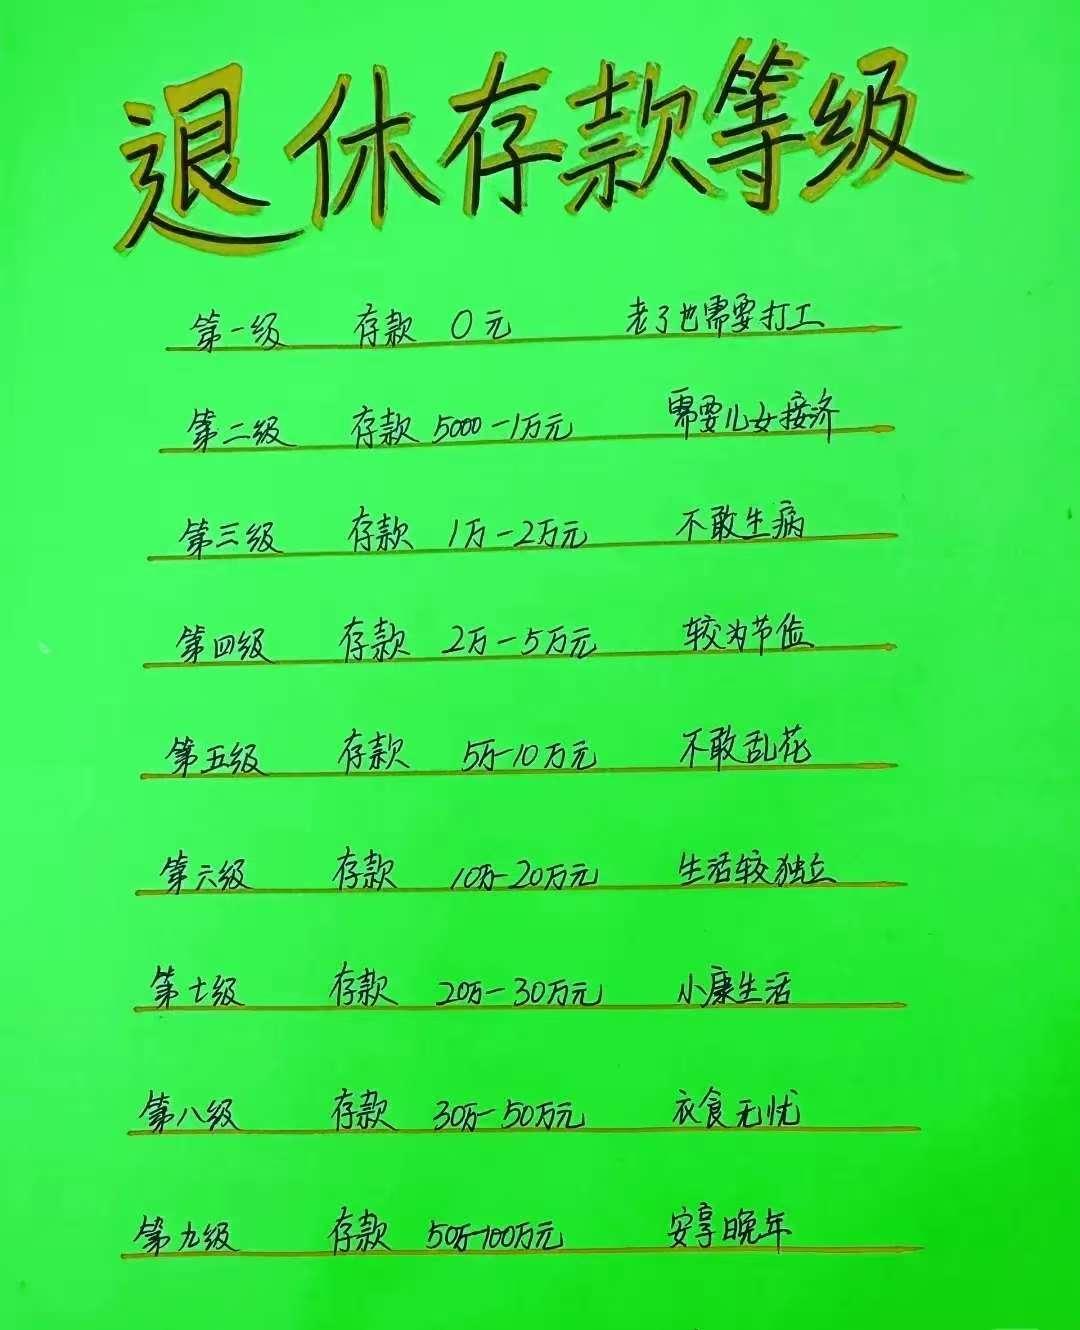 退休存款等级
第一级 存款 0元 老了也需要打工
第二级 存款 5000-1万元 需要儿女接济
第三级 存款 1万-2万元 不敢生病
第四级 存款 2万-5万元 较为节俭
第五级 存款 5万-10万元 不敢乱花
第六级 存款 10万-20万元 生活较独立
第七级 存款 20万-30万元 小康生活
第八级 存款 30万-50万元 衣食无忧
第九级 存款 50万-100万元 安享晚年